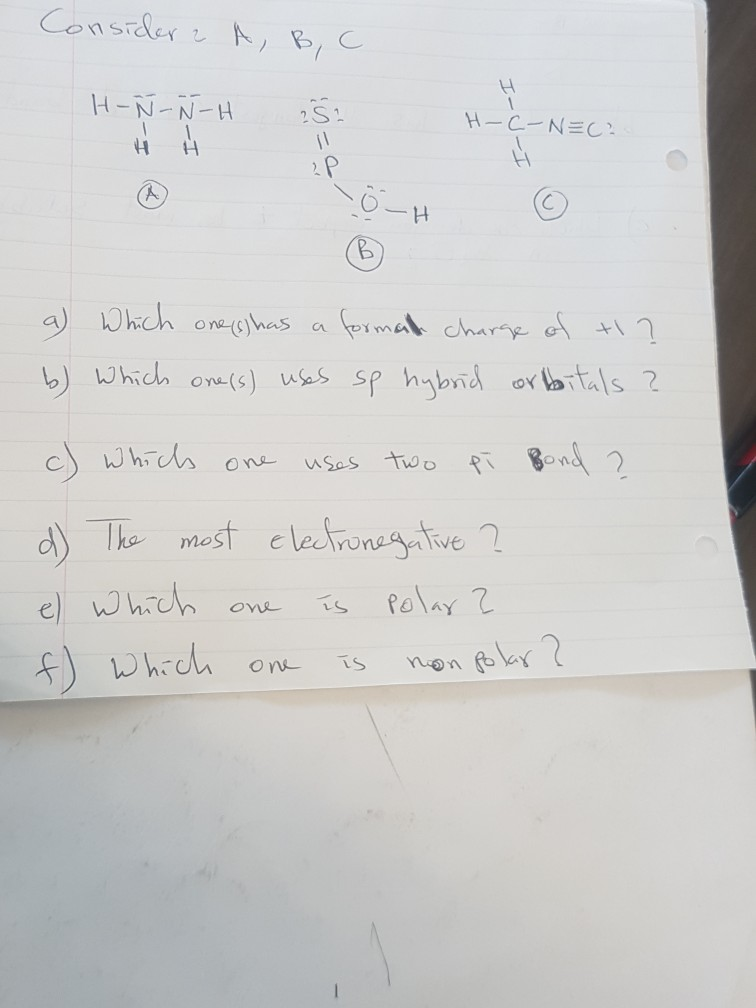 Consider : A, B, C
H-N̈-N̈-H
H H
:S̈:
||
:P
\
Ö-H
H
|
H-C-N≡C:
|
H
A
B
C
a) Which one(s) has a formal charge of +1 ?
b) Which one(s) uses sp hybrid orbitals ?
c) Which one uses two pi Bond ?
d) The most electronegative ?
e) Which one is polar ?
f) Which one is non polar ?